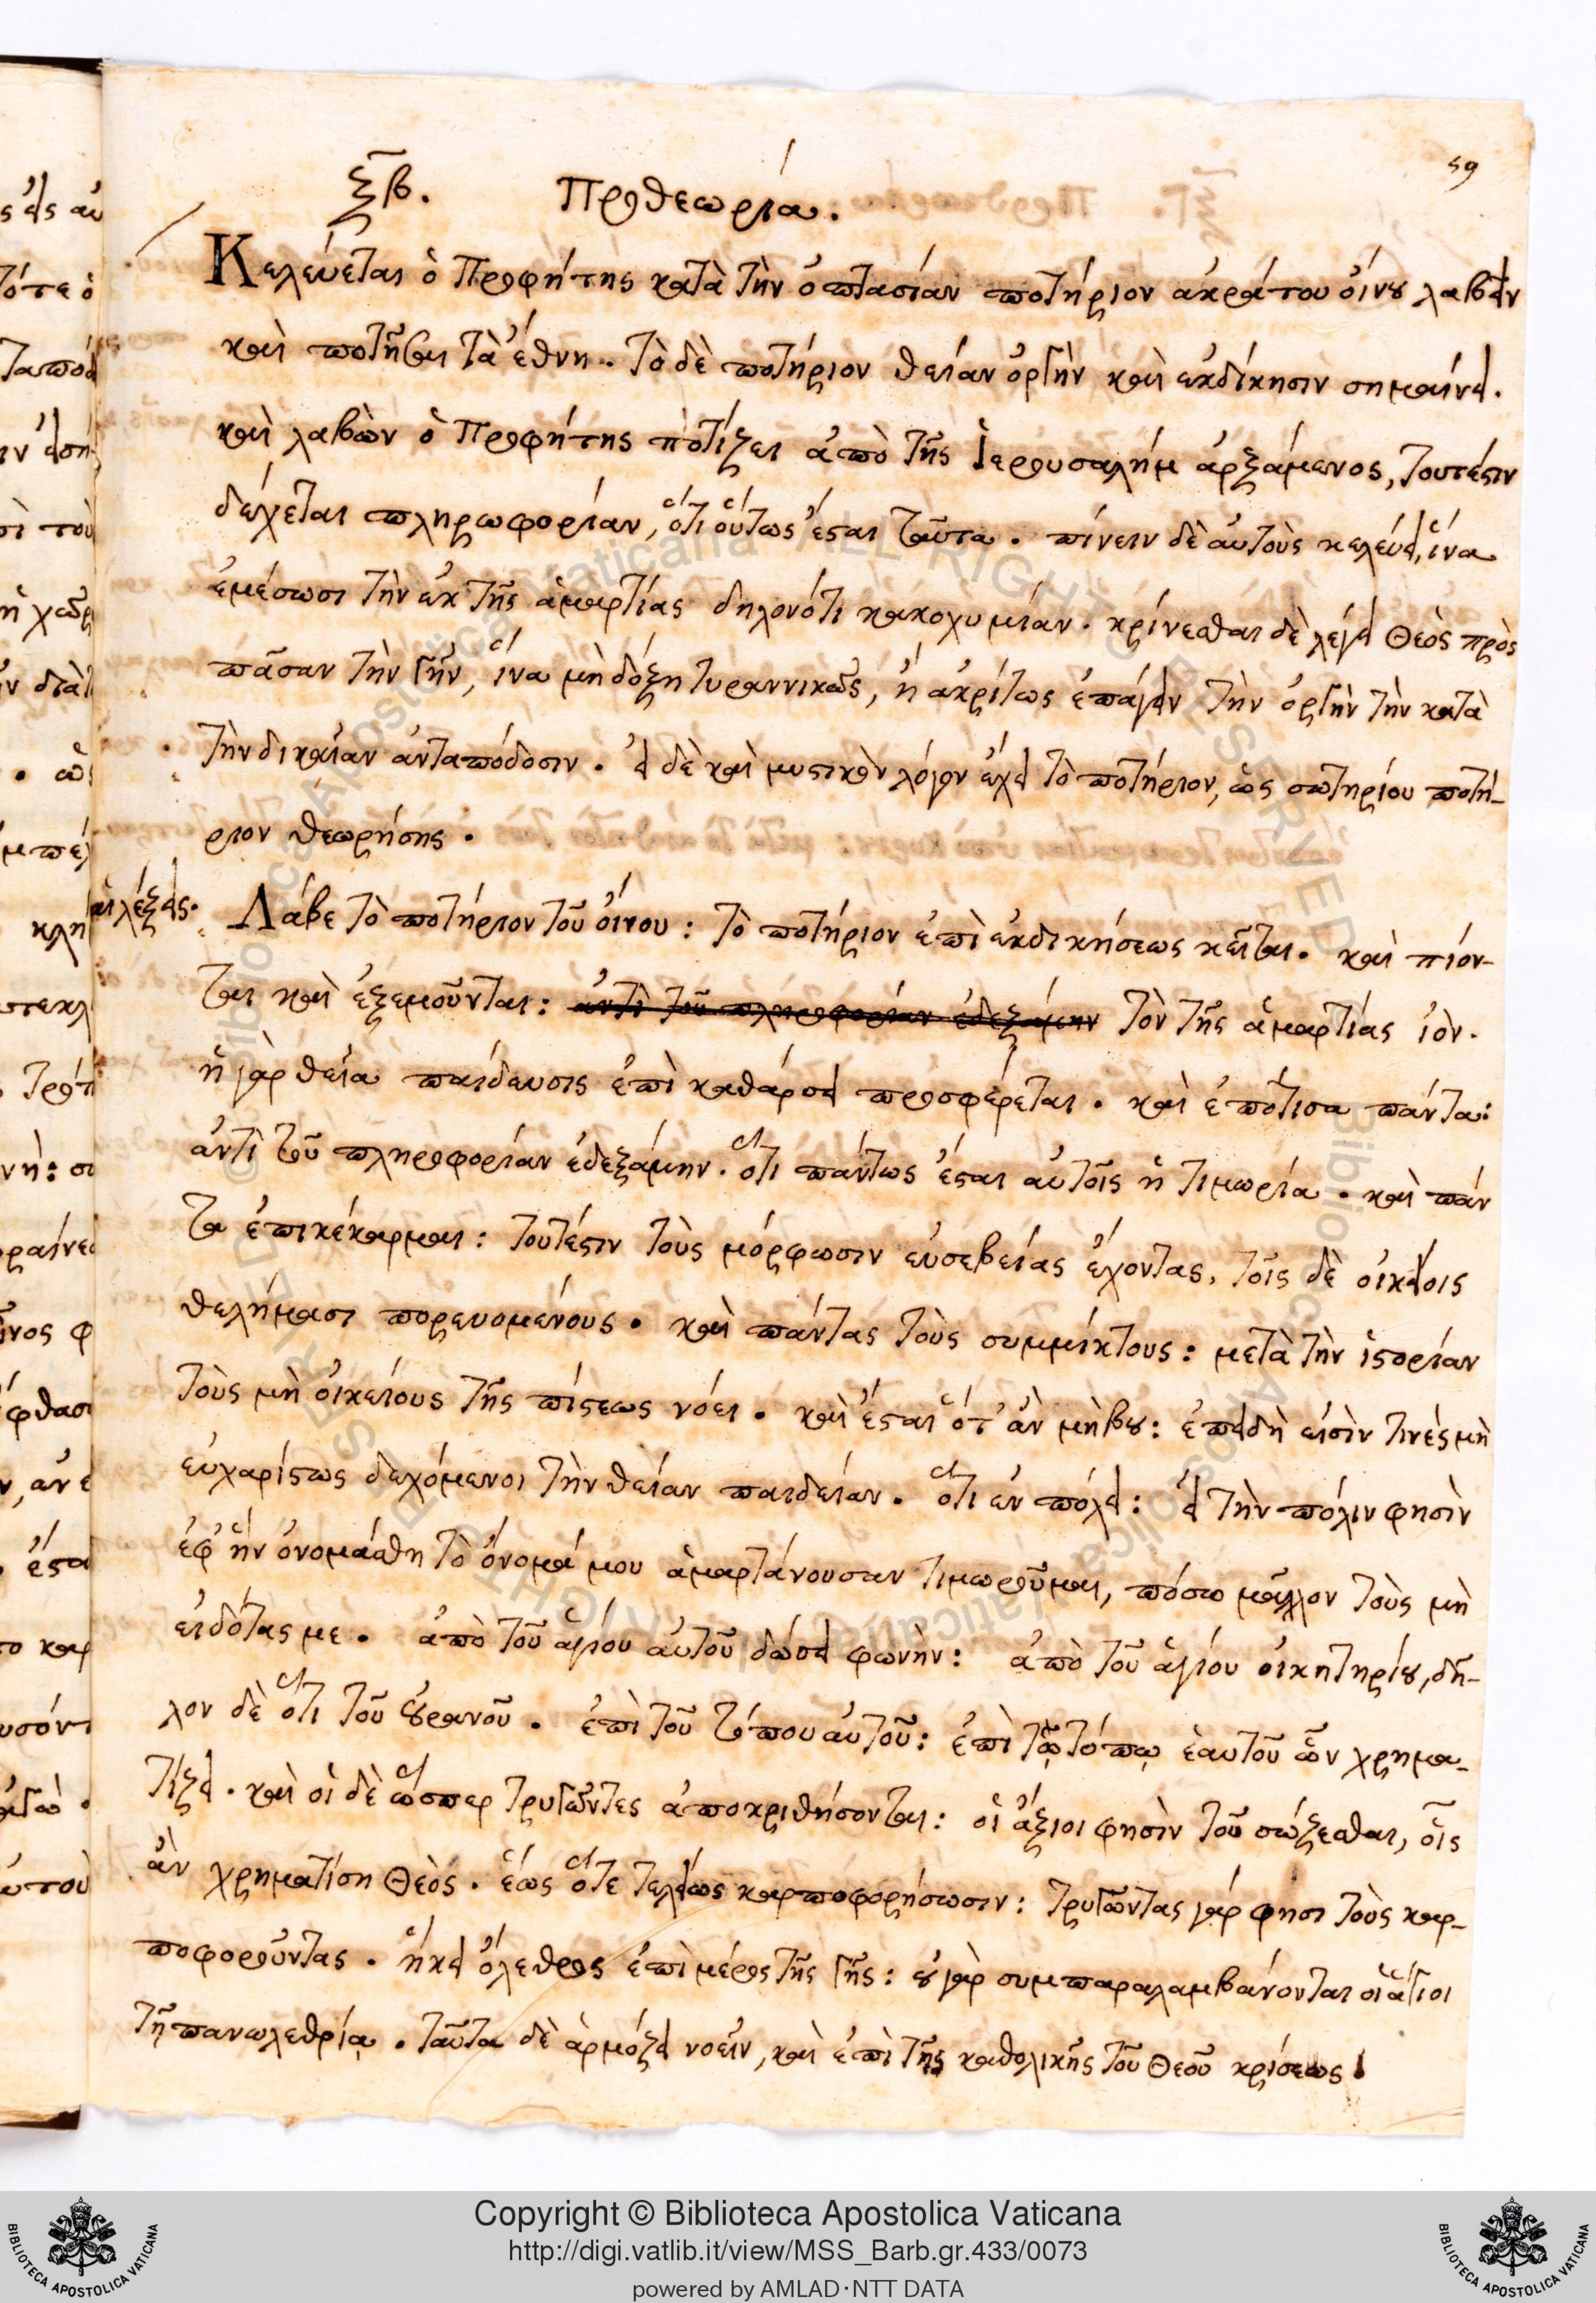 59
ξβ. Προθεωρία.
Κελεύεται ὁ Προφήτης κατὰ τὴν ὀπτασίαν ποτήριον ἀκράτου οἴνου λαβεῖν
καὶ ποτῆσαι τὰ ἔθνη. τὸ δὲ ποτήριον θείαν ὀργὴν καὶ ἐκδίκησιν σημαίνει.
καὶ λαβὼν ὁ Προφήτης ποτίζει ἀπὸ τῆς Ἱερουσαλήμ ἀρξάμενος, τουτέστιν
δέχεται πληρωφορίαν, ὅτι οὕτως ἔσται ταῦτα. πίνειν δὲ αὐτοὺς κελεύει, ἵνα
ἐμέσωσι τὴν ἐκ τῆς ἁμαρτίας δηλονότι κακοχυμίαν. κρίνεσθαι δὲ λέγει Θεὸς πρὸς
πᾶσαν τὴν γῆν, ἵνα μὴ δόξῃ τυραννικῶς, ἢ ἀκρίτως ἐπάγειν τὴν ὀργὴν τὴν κατὰ
τὴν δικαίαν ἀνταπόδοσιν. εἰ δὲ καὶ μυστικὸν λόγον ἔχει τὸ ποτήριον, ὡς σωτηρίου ποτή-
ριον θεωρήσης.
αἱ λέξεις. Λάβε τὸ ποτήριον τοῦ οἴνου: τὸ ποτήριον ἐπὶ ἐκδικήσεως κεῖται. καὶ πίον-
ται καὶ ἐξεμοῦνται: ἀντὶ τοῦ πληροφορίαν ἐδεξάμην τὸν τῆς ἁμαρτίας ἰὸν.
ἡ γὰρ θεία παίδευσις ἐπὶ καθάρσει προσφέρεται. καὶ ἐπότισα πάντα:
ἀντὶ τοῦ πληροφορίαν ἐδεξάμην. ὅτι πάντως ἔσται αὐτοῖς ἡ τιμωρία. καὶ πάν
τα ἐπικέκαρμαι: τουτέστιν τοὺς μόρφωσιν εὐσεβείας ἔχοντας, τοῖς δὲ οἰκείοις
θελήμασι πορευομένους. καὶ πάντας τοὺς συμμίκτους: μετὰ τὴν ἱστορίαν
τοὺς μὴ οἰκείους τῆς πίστεως νόει. καὶ ἔσται ὅτ' ἂν μὴ βου: ἐπειδὴ εἰσὶν τινές μὴ
εὐχαρίστως δεχόμενοι τὴν θείαν παιδείαν. ὅτι ἐν πόλει: εἰ τὴν πόλιν φησὶν
ἐφ' ἣν ὀνομάσθη τὸ ὄνομά μου ἁμαρτάνουσαν τιμωροῦμαι, πόσω μᾶλλον τοὺς μὴ
εἰδότας με. ἀπὸ τοῦ ἁγίου αὐτοῦ δώσει φωνὴν: ἀπὸ τοῦ ἁγίου οἰκητηρίου, δῆ-
λον δὲ ὅτι τοῦ οὐρανοῦ. ἐπὶ τοῦ τόπου αὐτοῦ: ἐπὶ τῷ τόπῳ ἑαυτοῦ ὢν χρημα-
τίζει. καὶ οἱ δὲ ὥσπερ τρυγῶντες ἀποκριθήσονται: οἱ ἄξιοι φησὶν τοῦ σώζεσθαι, οἷς
ἂν χρηματίση Θεὸς. ἕως ὅτε τελείως καρποφορήσωσιν: τρυγῶντας γάρ φησι τοὺς καρ-
ποφοροῦντας. ἥκει ὄλεθρος ἐπὶ μέρος τῆς γῆς: οὐ γὰρ συμπαραλαμβάνονται οἱ ἅγιοι
τῇ πανωλεθρίᾳ. ταῦτα δὲ ἁρμόζει νοεῖν, καὶ ἐπὶ τῆς καθολικῆς τοῦ Θεοῦ κρίσεως.
Copyright © Biblioteca Apostolica Vaticana
http://digi.vatlib.it/view/MSS_Barb.gr.433/0073
powered by AMLAD·NTT DATA